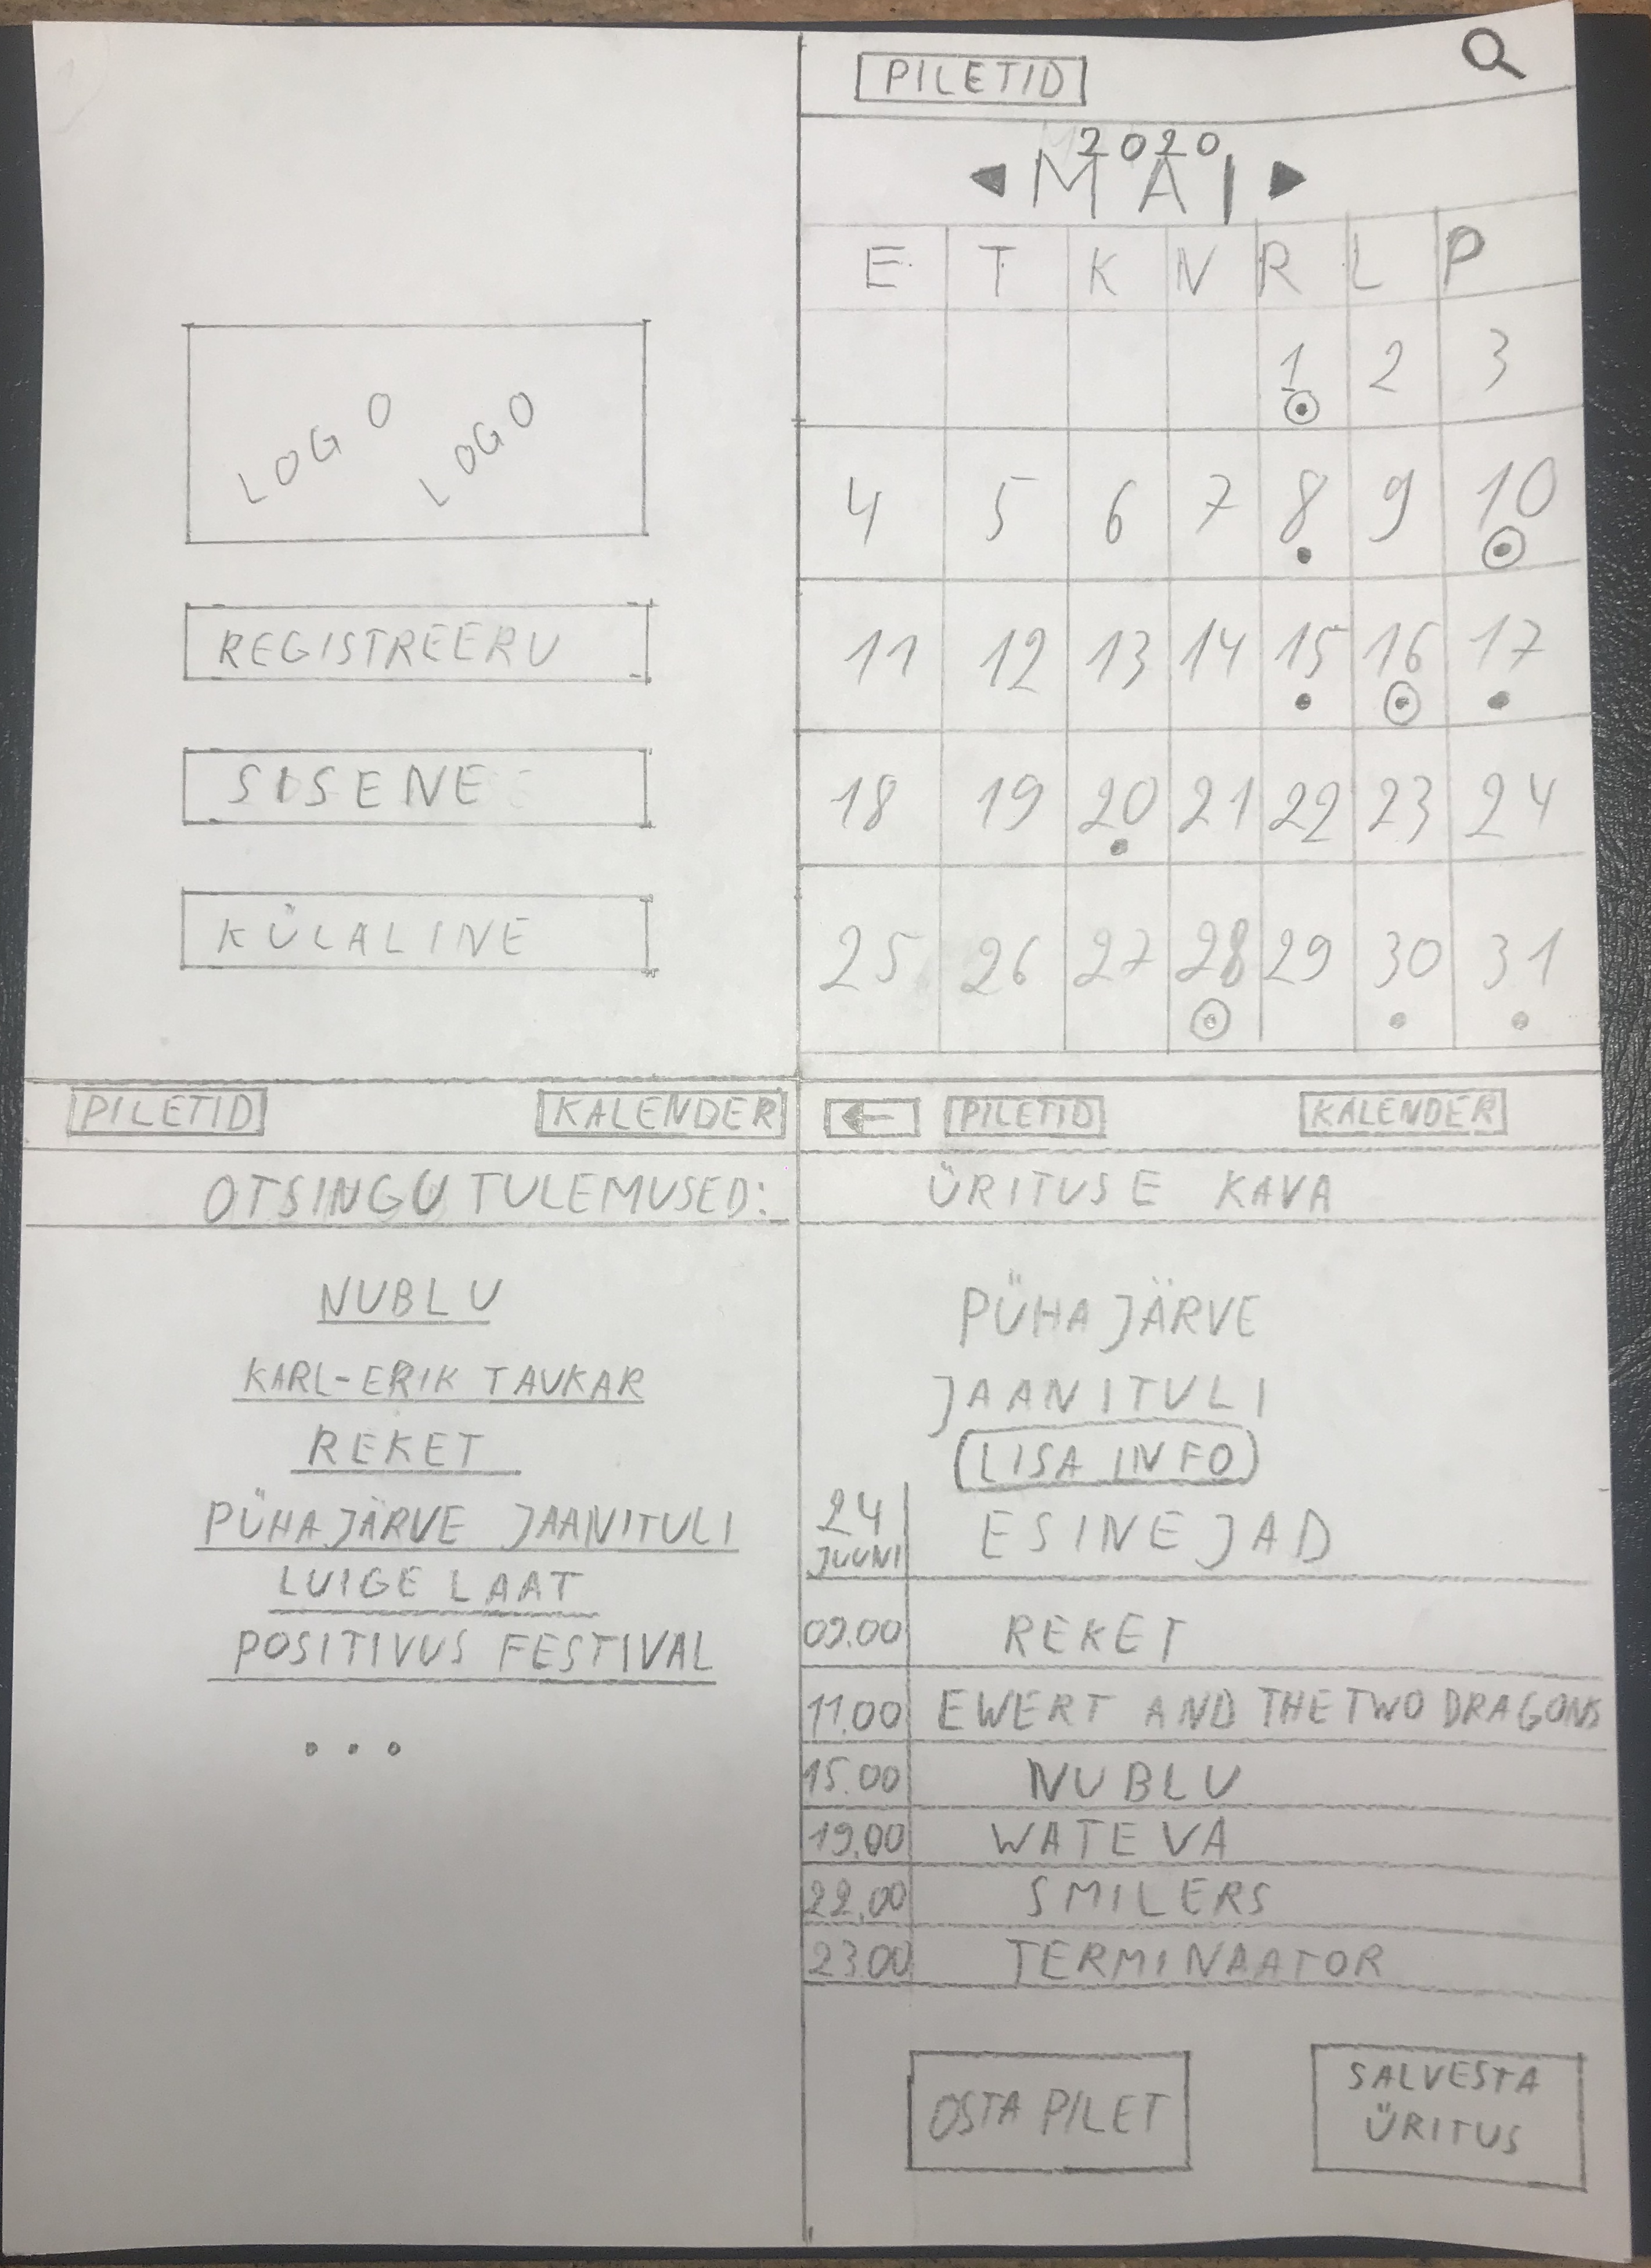 LOGO LOGO
REGISTREERU
SISENE
KÜLALINE
PILETID
2020
MAI
E T K N R L P
1 2 3
4 5 6 7 8 9 10
11 12 13 14 15 16 17
18 19 20 21 22 23 24
25 26 27 28 29 30 31
PILETID KALENDER
OTSINGU TULEMUSED:
NUBLU
KARL-ERIK TAUKAR
REKET
PÜHAJÄRVE JAANITULI
LUIGE LAAT
POSITIVUS FESTIVAL
...
← PILETID KALENDER
ÜRITUSE KAVA
PÜHAJÄRVE
JAANITULI
LISA INFO
24 JUUNI ESINEJAD
09.00 REKET
11.00 EWERT AND THE TWO DRAGONS
15.00 NUBLU
19.00 WATEVA
22.00 SMILERS
23.00 TERMINAATOR
OSTA PILET
SALVESTA
ÜRITUS